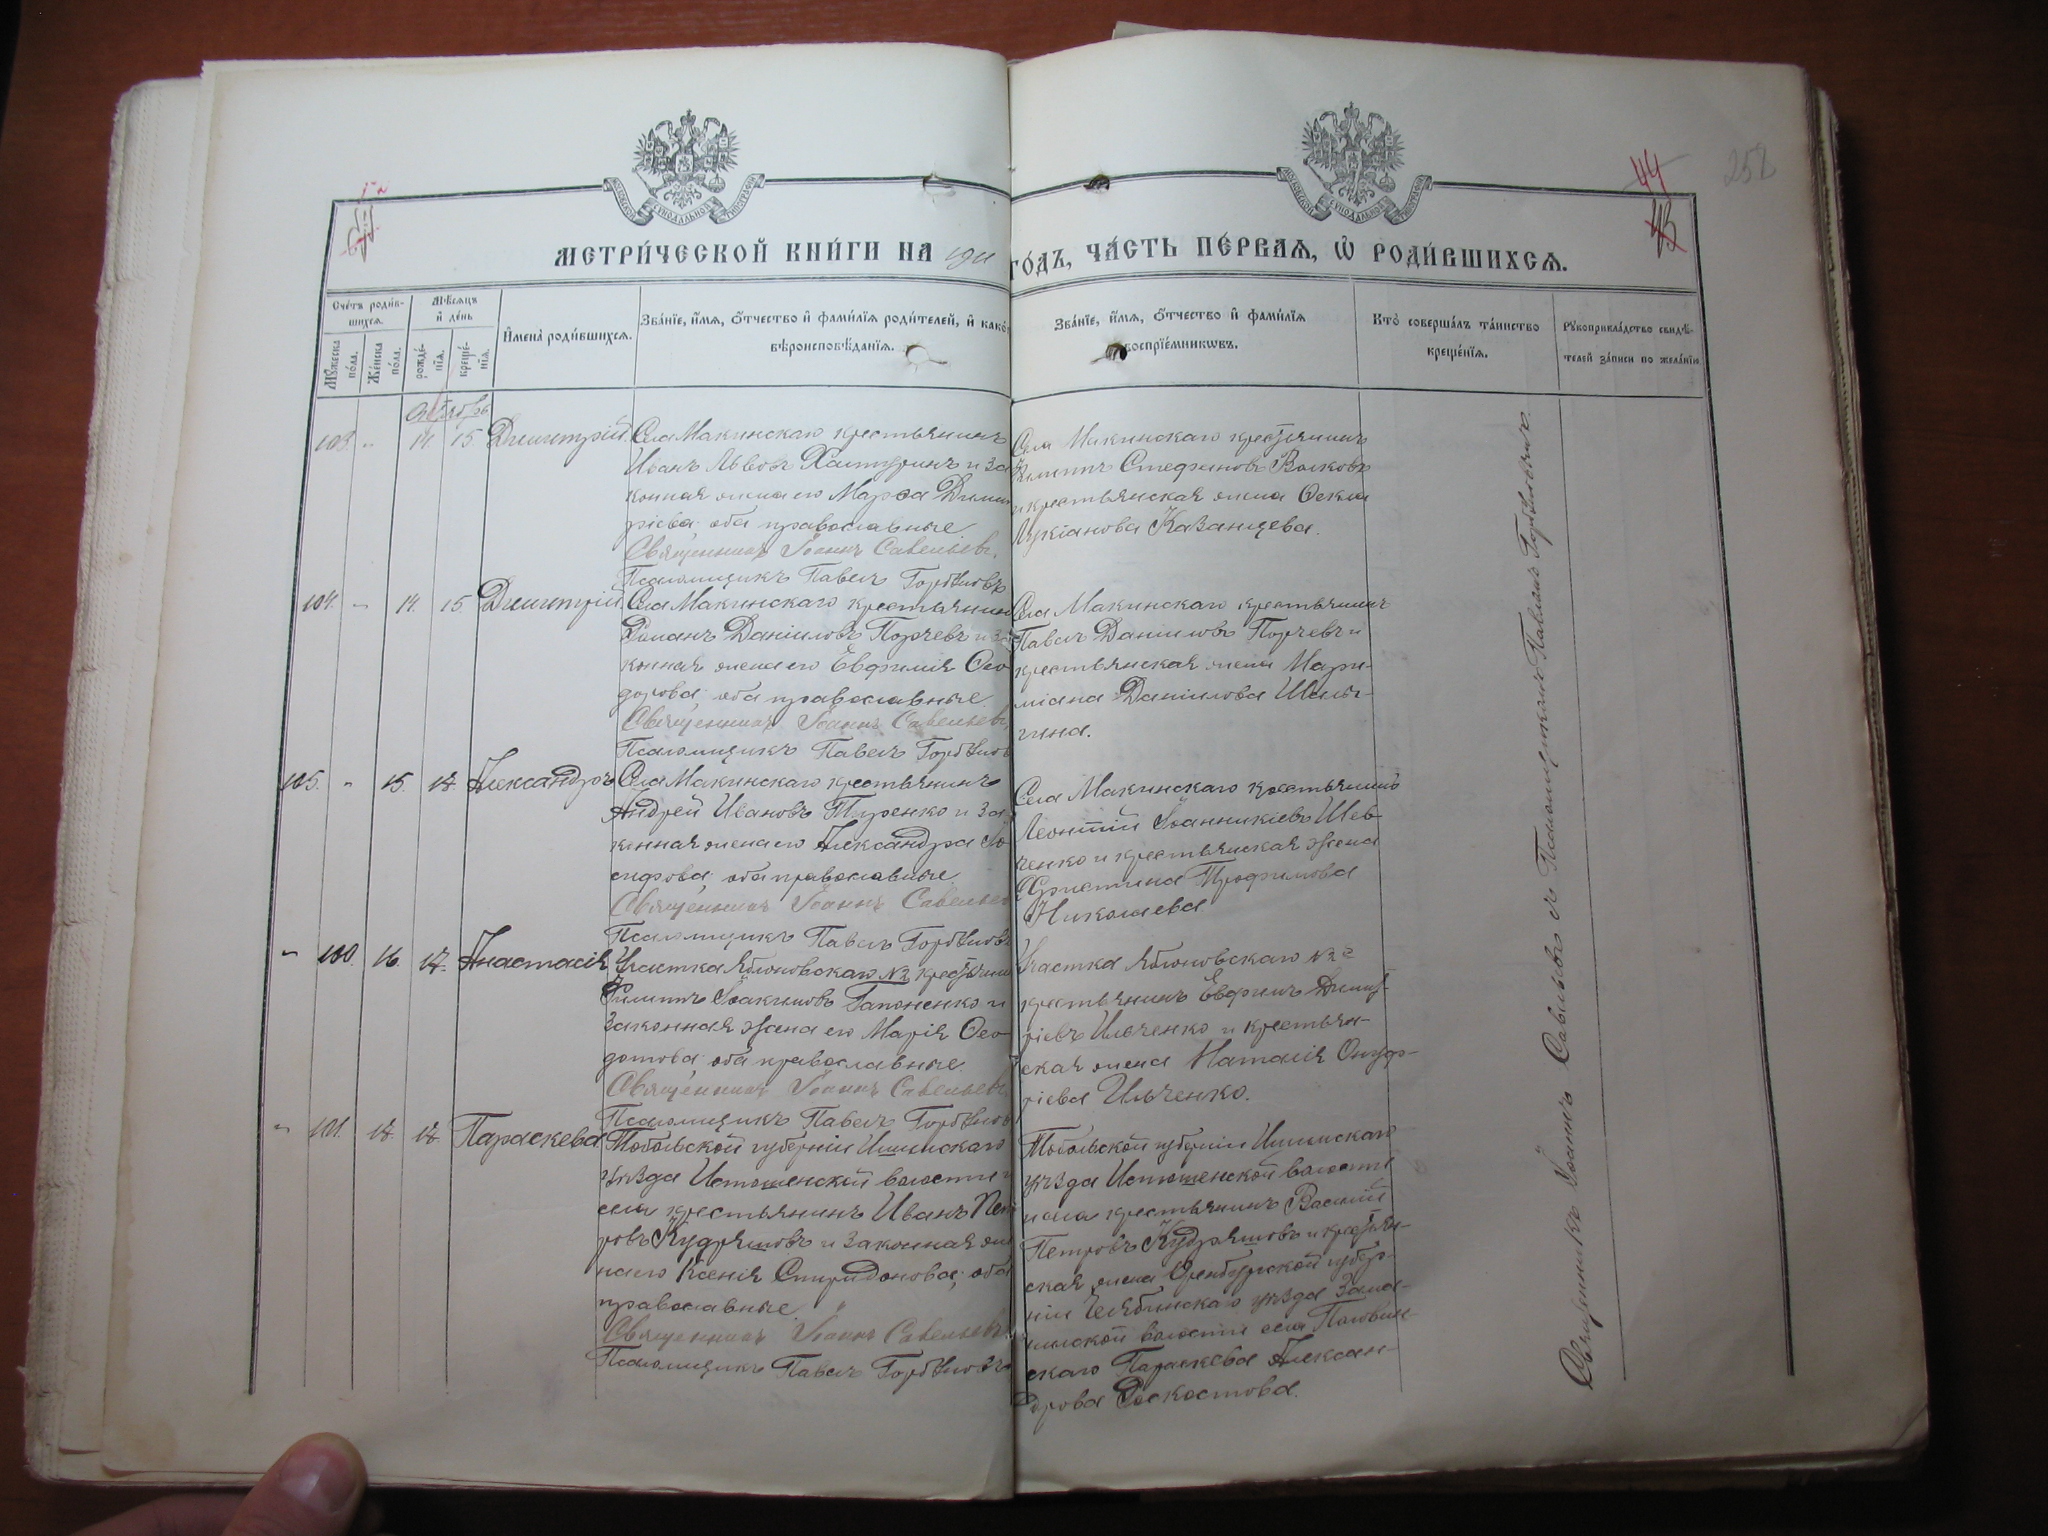 МОСКОВСКОЙ СУНОДАЛЬНОЙ ТИПОГРАФІИ
МОСКОВСКОЙ СУНОДАЛЬНОЙ ТИПОГРАФІИ
44
43
258
МЕТРИ́ЧЕСКОЙ КНИ́ГИ НА 1911 ГО́ДЪ, ЧА́СТЬ ПЕ́РВАЯ, Ѡ҆ РОДИ́ВШИХСЯ.
Сче́тъ роди́вшихся.
Му́жеска по́ла.
Же́нска по́ла.
Мѣ́сяцъ и҆ де́нь
рожде́нїя.
креще́нїя.
И҆мена̀ роди́вшихся.
Зва́нїе, и҆́мя, ѻ҆́тчество и҆ фами́лїя роди́телей, и҆ како́
вѣроисповѣ́данїя.
Зва́нїе, и҆́мя, ѻ҆́тчество и҆ фами́лїя
воспрїе́мниковъ.
Кто̀ соверша́лъ та́инство
креще́нїя.
Рꙋкоприкла́дство свидѣ́-
телей за́писи по жела́нїю
Октябрь
103. " 14. 15 Димитрій
Села Макинскаго крестьянинъ
Иванъ Львовъ Хатуринъ и за
конная жена его Марѳа Димит
ріева; оба православные
Священникъ Іоаннъ Савельевъ,
Псаломщикъ Павелъ Горбуновъ
Села Макинскаго крестьянинъ
Филиппъ Стефановъ Волковъ
и крестьянская жена Ѳекла
Лукіанова Казанцева.
104. " 14. 15 Димитрій
Села Макинскаго крестьянинъ
Романъ Даніиловъ Порчевъ и за
конная жена его Евфимія Ѳео
дорова; оба православные
Священникъ Іоаннъ Савельевъ,
Псаломщикъ Павелъ Горбуновъ
Села Макинскаго крестьянинъ
Павелъ Даніиловъ Порчевъ и
крестьянская жена
Даніилова
гина.
105. " 15. 17. Александръ
Села Макинскаго крестьянинъ
Андрей Ивановъ Тиренко и за
конная жена его Александра Іо
сифова; оба православные
Священникъ Іоаннъ Савельевъ
Псаломщикъ Павелъ Горбуновъ
Села Макинскаго крестьянинъ
Леонтій Іоанникіевъ Шев-
ченко и крестьянская жена
Христина Трофимова
Николаева
" 100. 16. 17. Анастасія
Участка Яблоновскаго №2 крестьянинъ
Филиппъ Іоакимовъ Гапоненко и
законная жена его Марія Ѳео
дотова; оба православные.
Священникъ Іоаннъ Савельевъ,
Псаломщикъ Павелъ Горбуновъ
Участка Яблоновскаго №2
крестьянинъ Евфимъ Димит-
ріевъ Ильченко и крестьян-
ская жена Наталія Онуф-
ріева Ильченко.
" 101. 17. 17. Параскева
Тобольской губерніи Ишимскаго
уѣзда Истошенской волости и
села крестьянинъ Иванъ Пет
ровъ Кудряшовъ и законная же
на его Ксенія Спиридонова; оба
православные
Священникъ Іоаннъ Савельевъ,
Псаломщикъ Павелъ Горбуновъ
Тобольской губерніи Ишимскаго
уѣзда Истошенской волости
и села крестьянинъ Василій
Петровъ Кудряшовъ и крестьян-
ская жена Оренбургской губер-
ніи Челябинскаго уѣзда
волости села Половин-
скаго Параскева Алексан-
дрова
Священникъ Іоаннъ Савельевъ съ Псаломщикомъ Павломъ Горбуновымъ.